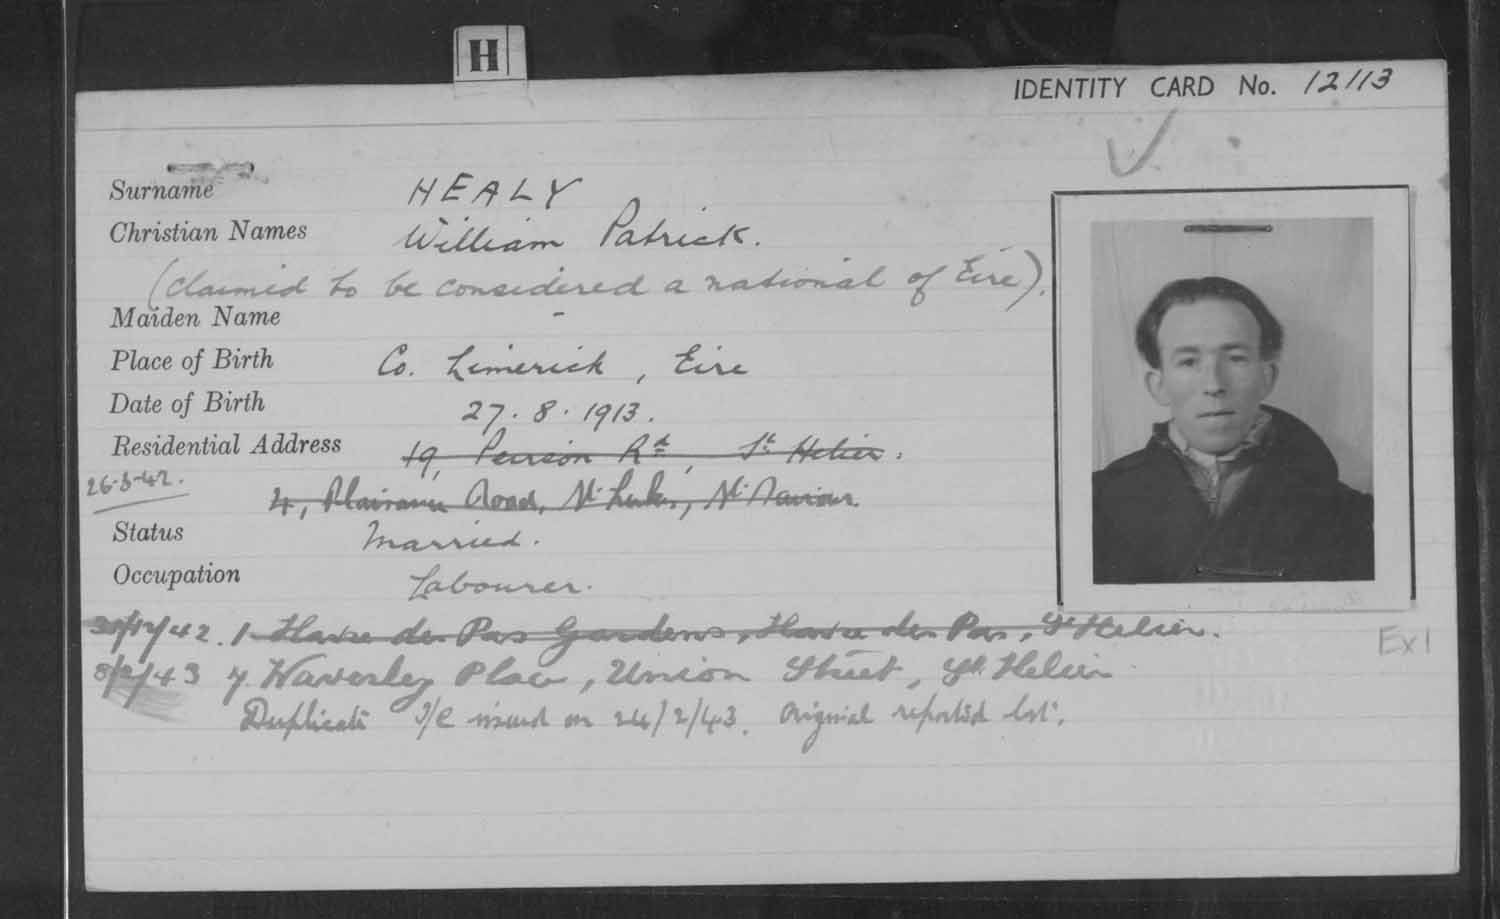 H
IDENTITY CARD No. 12113
Surname HEALY
Christian Names William Patrick.
(claimed to be considered a national of Eire).
Maiden Name -
Place of Birth Co. Limerick, Eire
Date of Birth 27.8.1913.
Residential Address 19, Pierson Rd, St Helier.
26-5-42. 4, Plaisance Road, St. Luke's, St. Saviour.
Status Married.
Occupation Labourer.
/42. 1 Havre des Pas Gardens, Havre des Pas, St Helier.
8/2/43 7. Waverley Place, Union Street, St. Helier
Duplicate I/C issued on 24/2/43. Original reported lost.
Ex1